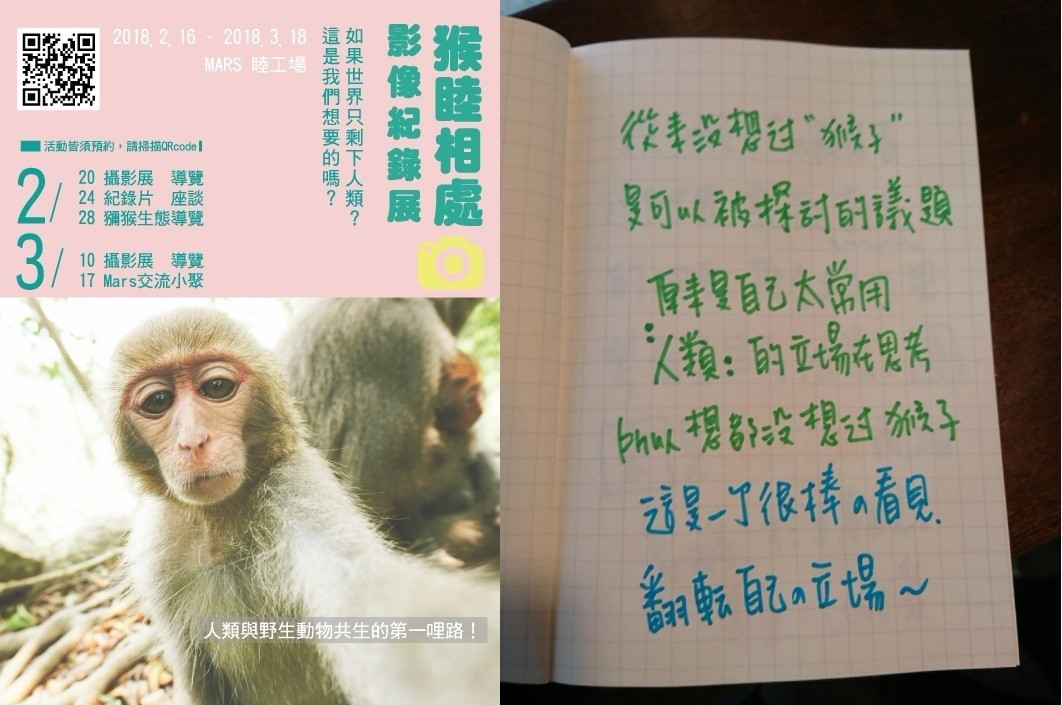 2018.2.16 - 2018.3.18
MARS 睦工場
猴睦相處
影像紀錄展
如果世界只剩下人類？
這是我們想要的嗎？
活動皆須預約，請掃描QRcode
2/
20 攝影展 導覽
24 紀錄片 座談
28 獼猴生態導覽
3/
10 攝影展 導覽
17 Mars交流小聚
人類與野生動物共生的第一哩路！
從來沒想过“猴子”
是可以被探討的議題
原來是自己太常用
：人類：的立場在思考
所以想都沒想过猴子
這是一个很棒の看見.
翻転自己の立場～